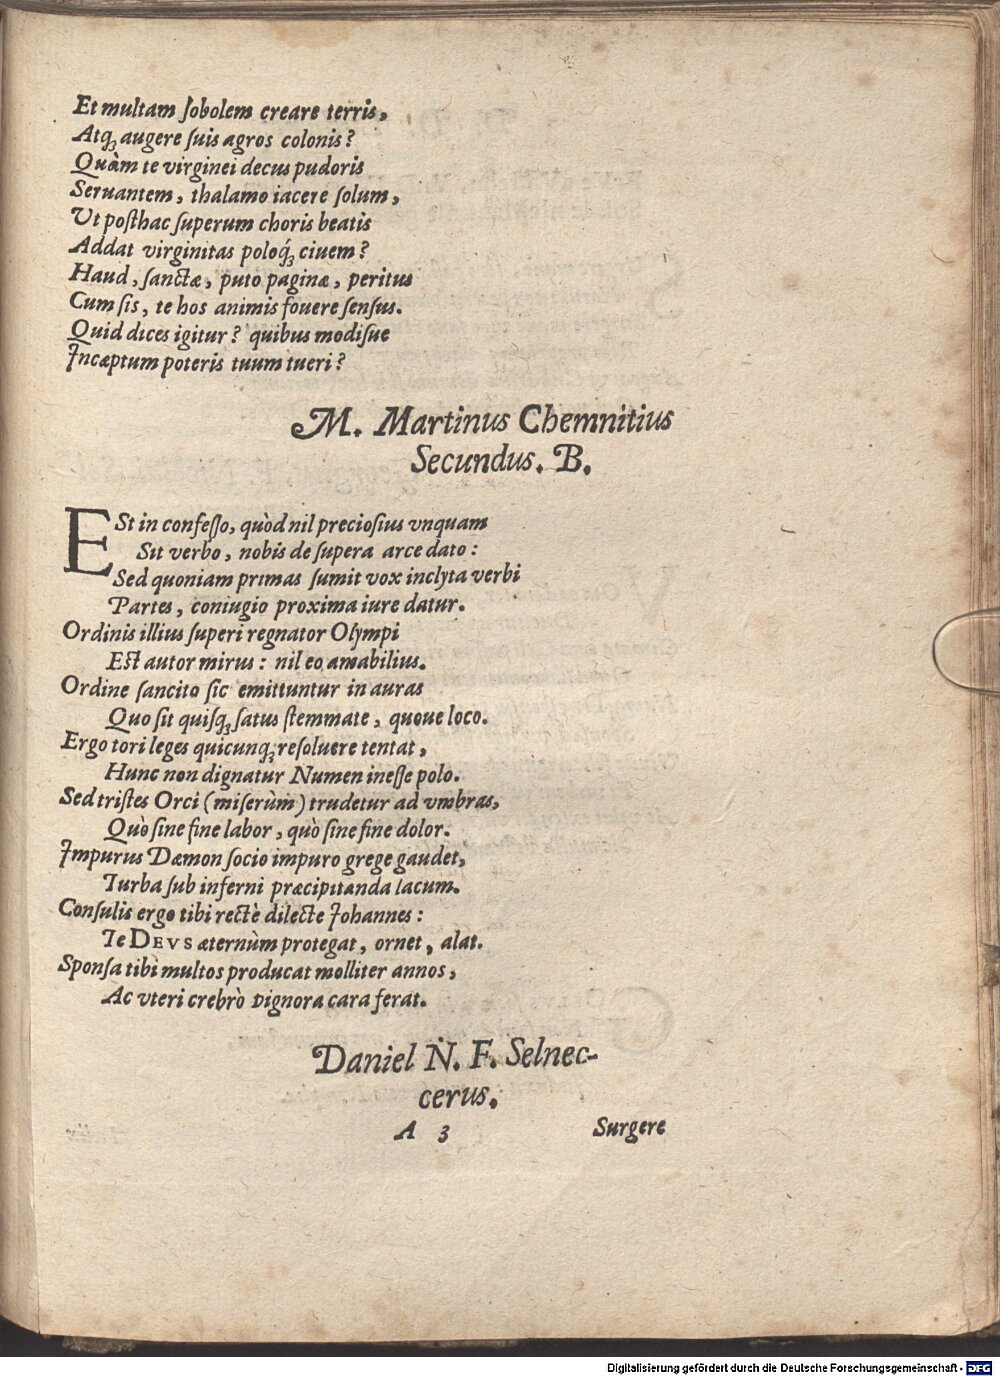 Et multam ſobolem creare terris,
Atq́; augere ſuis agros colonis?
Quàm te virginei decus pudoris
Seruantem, thalamo iacere ſolum,
Ut poſthac ſuperum choris beatis
Addat virginitas poloq́; ciuem?
Haud, ſanctæ, puto paginæ, peritus
Cum ſis, te hos animis fouere ſenſus.
Quid dices igitur? quibus modiſue
Incæptum poteris tuum tueri?
M. Martinus Chemnitius
Secundus. B.
ESt in confeſſo, quòd nil precioſius vnquam
Sit verbo, nobis de ſupera arce dato:
Sed quoniam primas ſumit vox inclyta verbi
Partes, coniugio proxima iure datur.
Ordinis illius ſuperi regnator Olympi
Eſt autor mirus: nil eo amabilius.
Ordine ſancito ſic emittuntur in auras
Quo ſit quiſq; ſatus ſtemmate, quoue loco.
Ergo tori leges quicunq; reſoluere tentat,
Hunc non dignatur Numen ineſſe polo.
Sed triſtes Orci (miſerùm) trudetur ad vmbras,
Quò ſine fine labor, quò ſine fine dolor.
Impurus Dæmon ſocio impuro grege gaudet,
Turba ſub inferni præcipitanda lacum.
Conſulis ergo tibi rectè dilecte Johannes:
Te DEVS æternùm protegat, ornet, alat.
Sponſa tibi multos producat molliter annos,
Ac vteri crebrò pignora cara ferat.
Daniel N. F. Selnec-
cerus.
A 3 Surgere
Digitalisierung gefördert durch die Deutsche Forschungsgemeinschaft - DFG